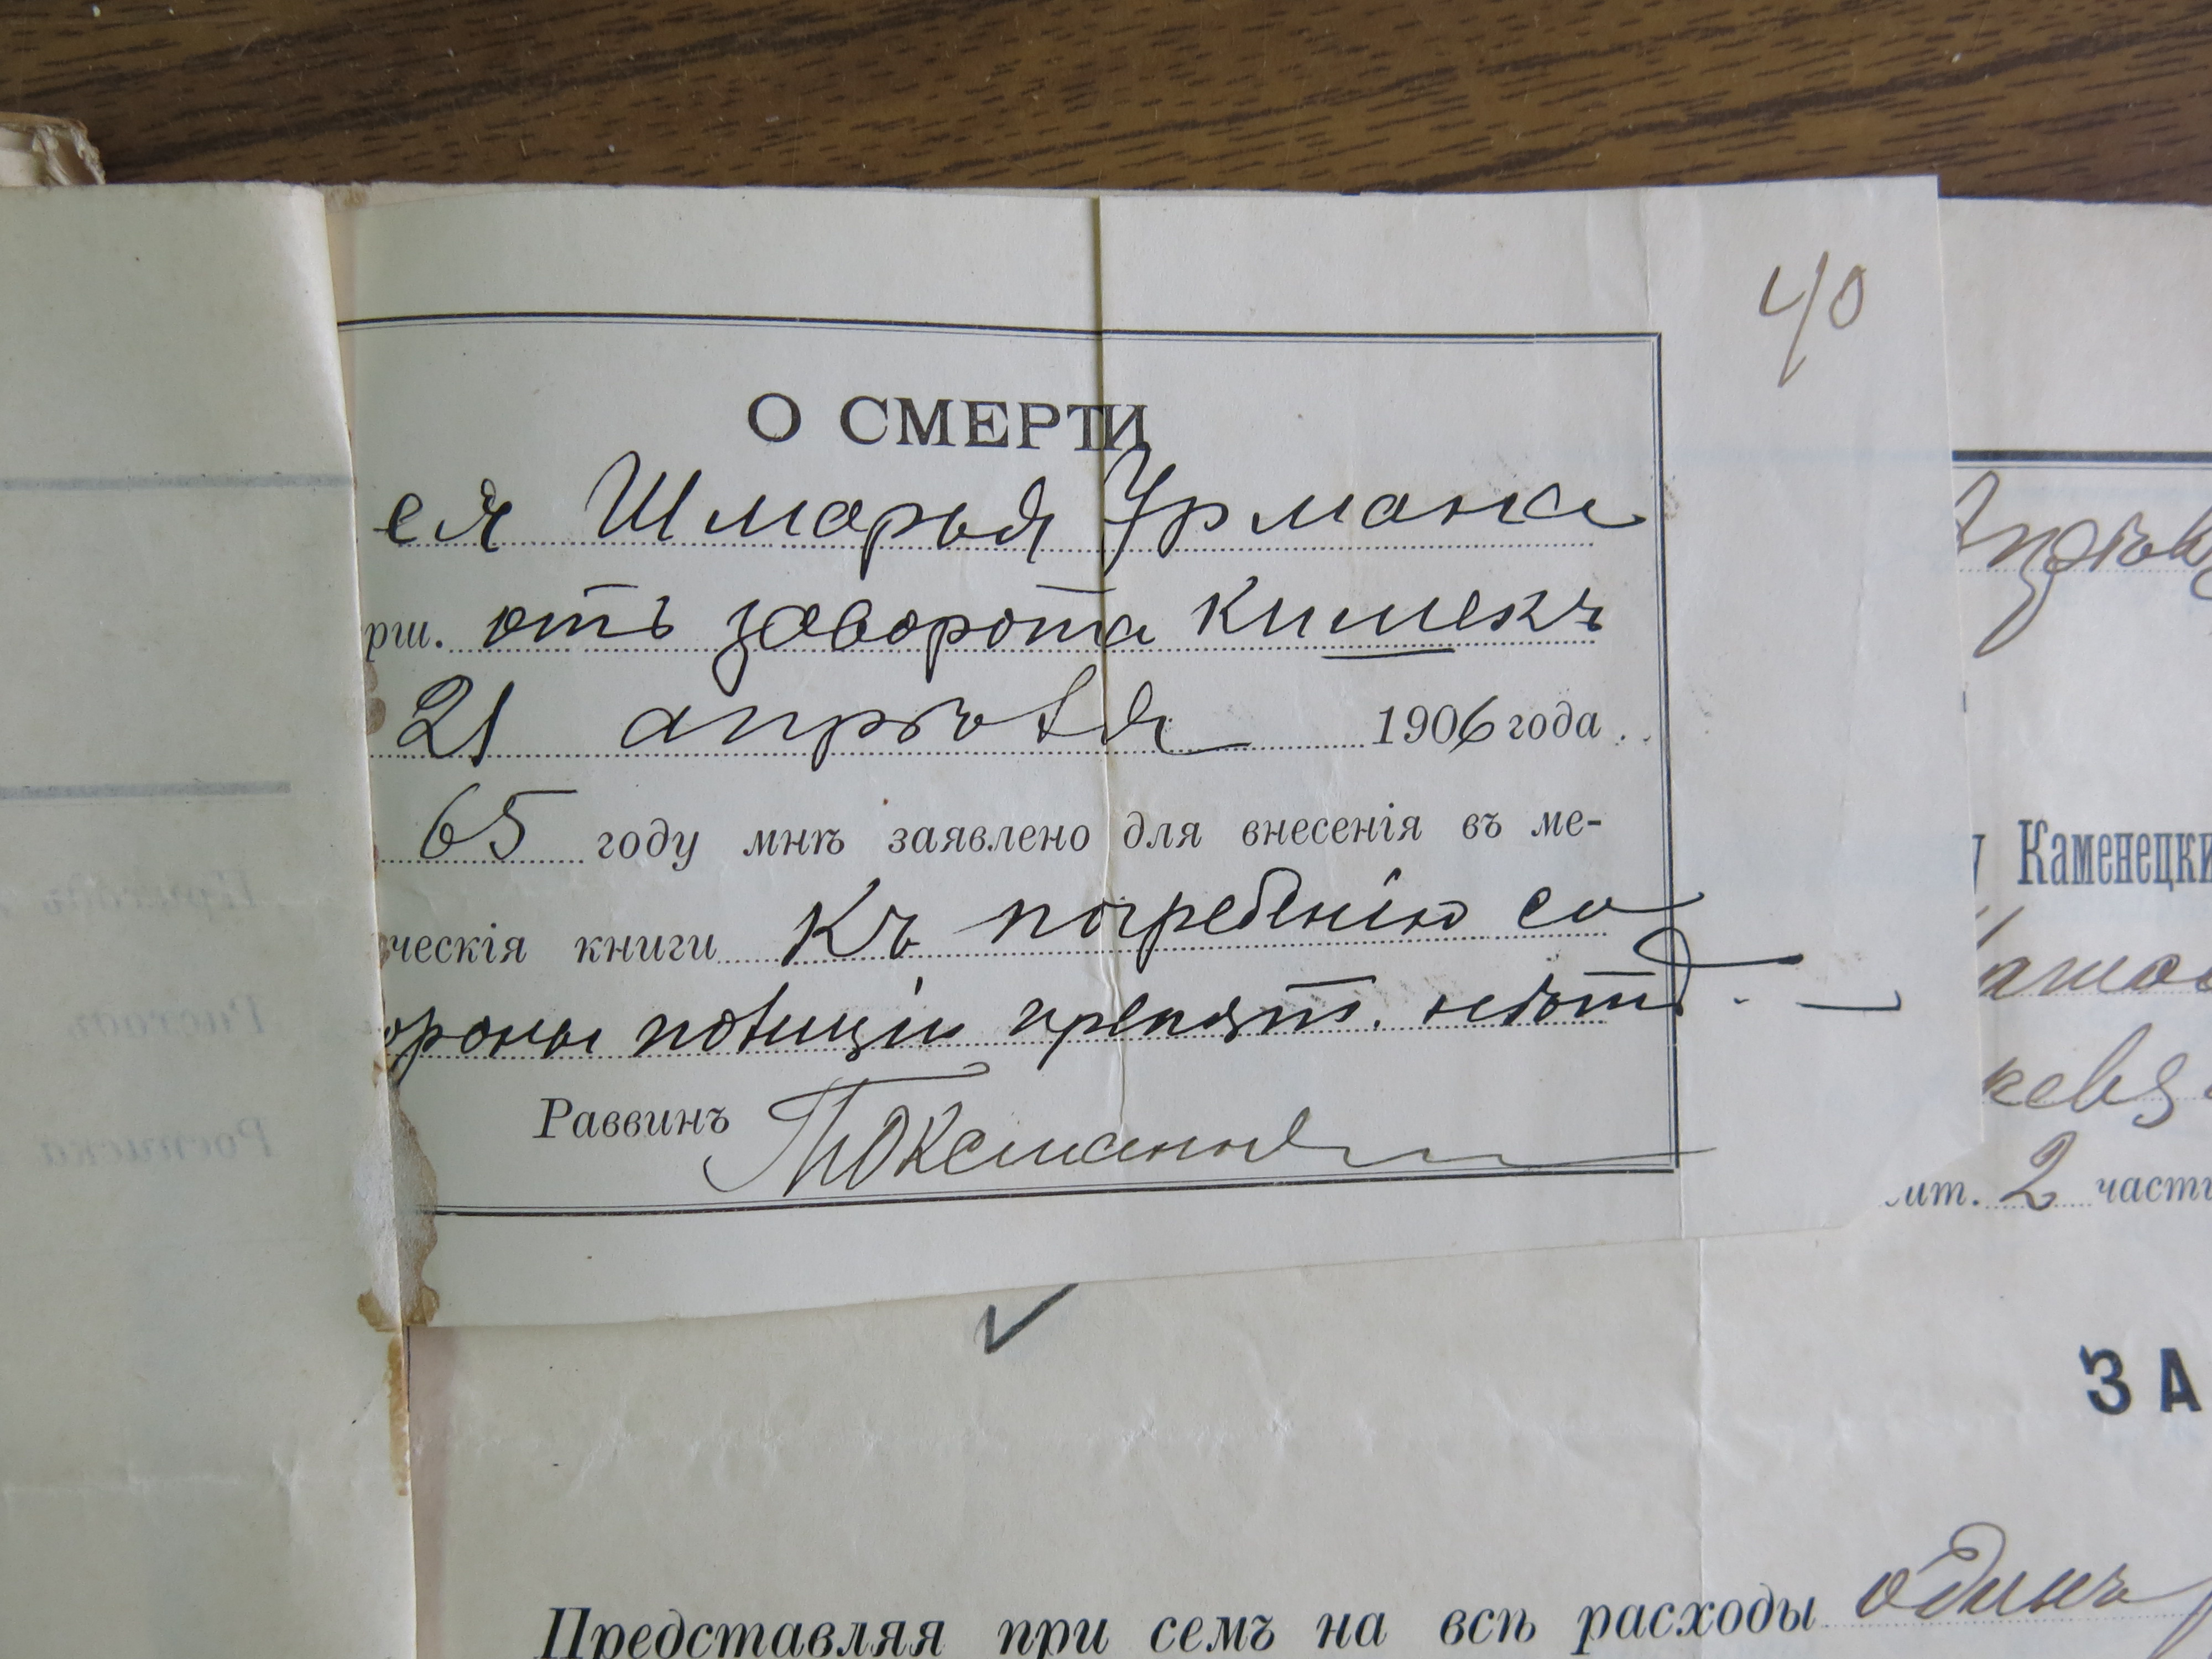 40
О СМЕРТИ
ея Шмарья Урмана
рш. отъ заворота кишекъ
21 апрѣля 1906 года
65 году мнѣ заявлено для внесенія въ ме-
ческія книги Къ погребенію со
ороны полиціи препятст. нѣтъ. —
Раввинъ
у Каменецки
кевз
ит. 2 части
ЗА
Представляя при семъ на всѣ расходы одинъ
Приходъ
Расходъ
Росписка